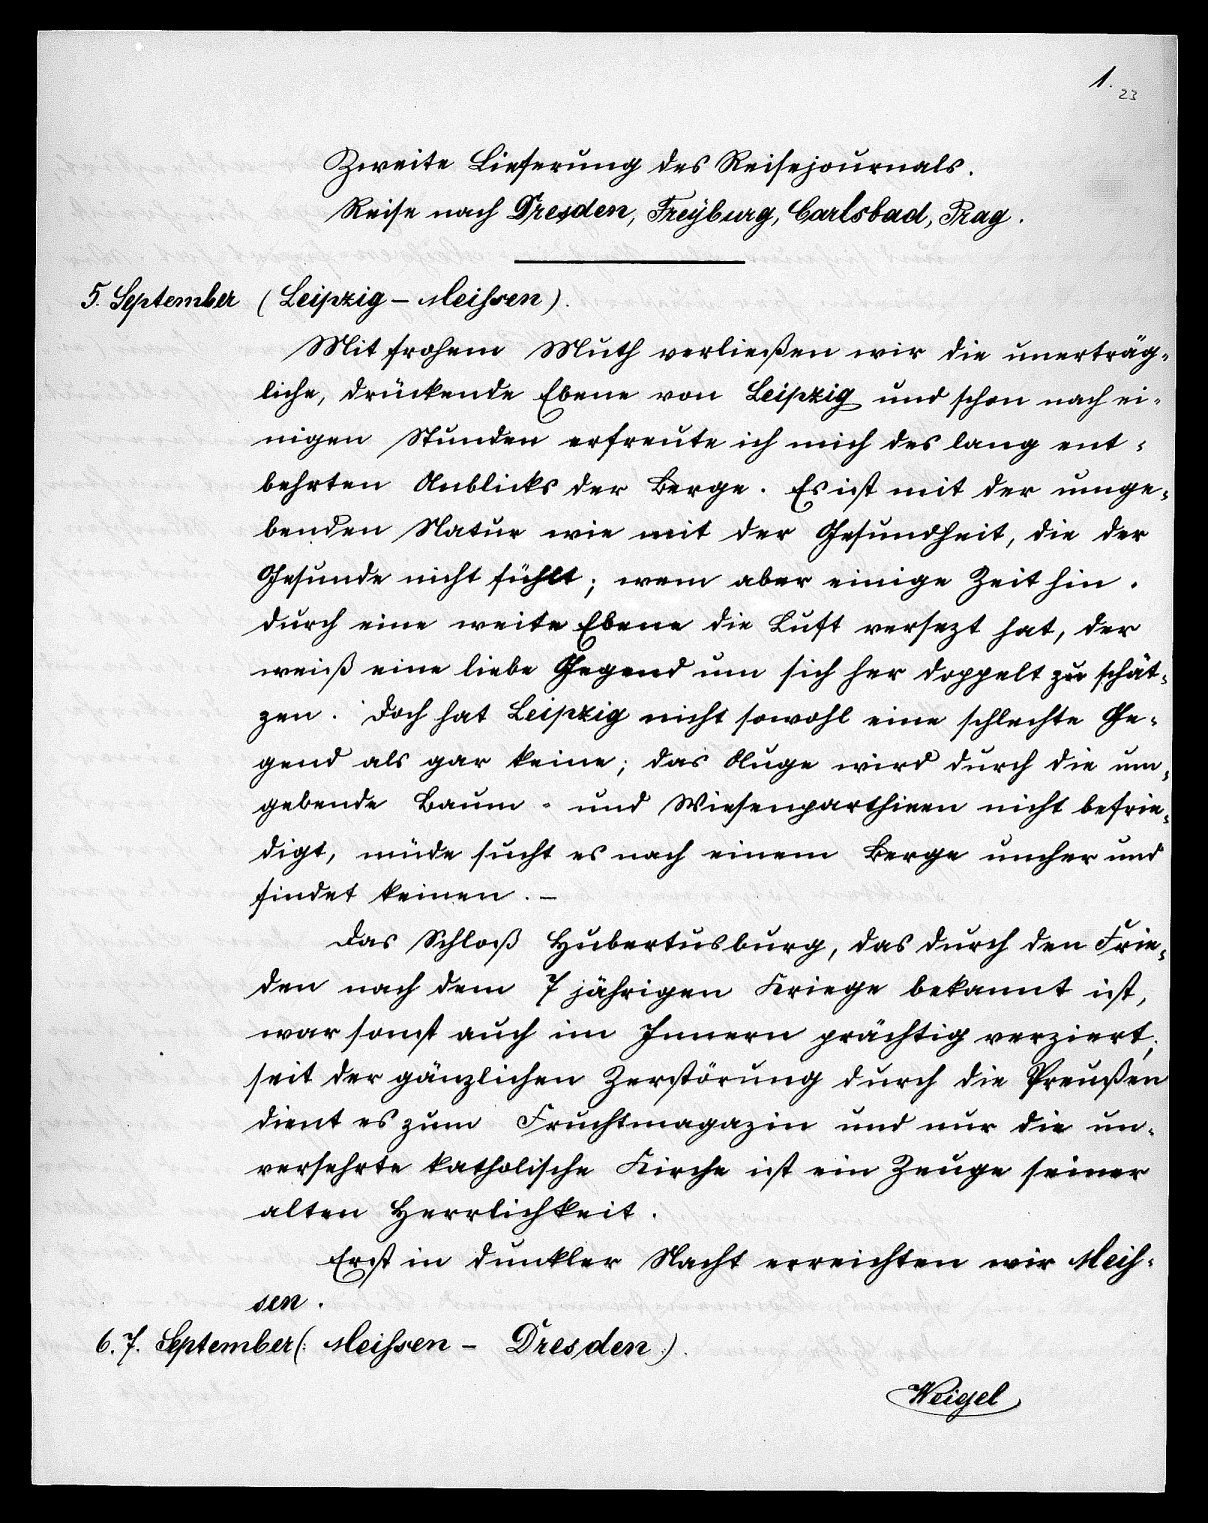 1.
23
Zweite Lieferung des Reisejournals.
Reise nach Dresden, Freÿburg, Carlsbad, Prag.
5. September (Leipzig – Meissen).
Mit frohem Muth verließen wir die unerträg-
liche, drückende Ebene von Leipzig und schon nach ei-
nigen Stunden erfreute ich mich des lang ent-
behrten Anblicks der Berge. Es ist mit der umge-
benden Natur wie mit der Gesundheit, die der
Gesunde nicht fühlt; wem aber einige Zeit hin-
durch eine weite Ebene die Luft versezt hat, der
weiß eine liebe Gegend um sich her doppelt zu schät-
zen. Doch hat Leipzig nicht sowohl eine schlechte Ge-
gend als gar keine; das Auge wird durch die um-
gebende Baum- und Wiesenparthieen nicht befrie-
digt, müde sucht es nach einem Berge umher und
findet keinen. –
Das Schloß Hubertusburg, das durch den Frie-
den nach dem 7 jährigen Kriege bekannt ist,
war sonst auch im Innern prächtig verziert;
seit der gänzlichen Zerstörung durch die Preußen
dient es zum Fruchtmagazin und nur die un-
versehrte katholische Kirche ist ein Zeuge seiner
alten Herrlichkeit.
Erst in dunkler Nacht erreichten wir Meis-
sen.
6. 7. September (: Meissen – Dresden :).
Weigel